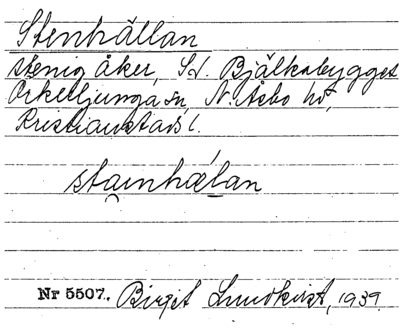 Stenhällan
stenig åker, Sd. Bjälkabygget
Örkelljunga sn, N. Åsbo hd,
Kristianstads l.
stainhælan
Nr 5507. Birgit Lundkvist, 1939